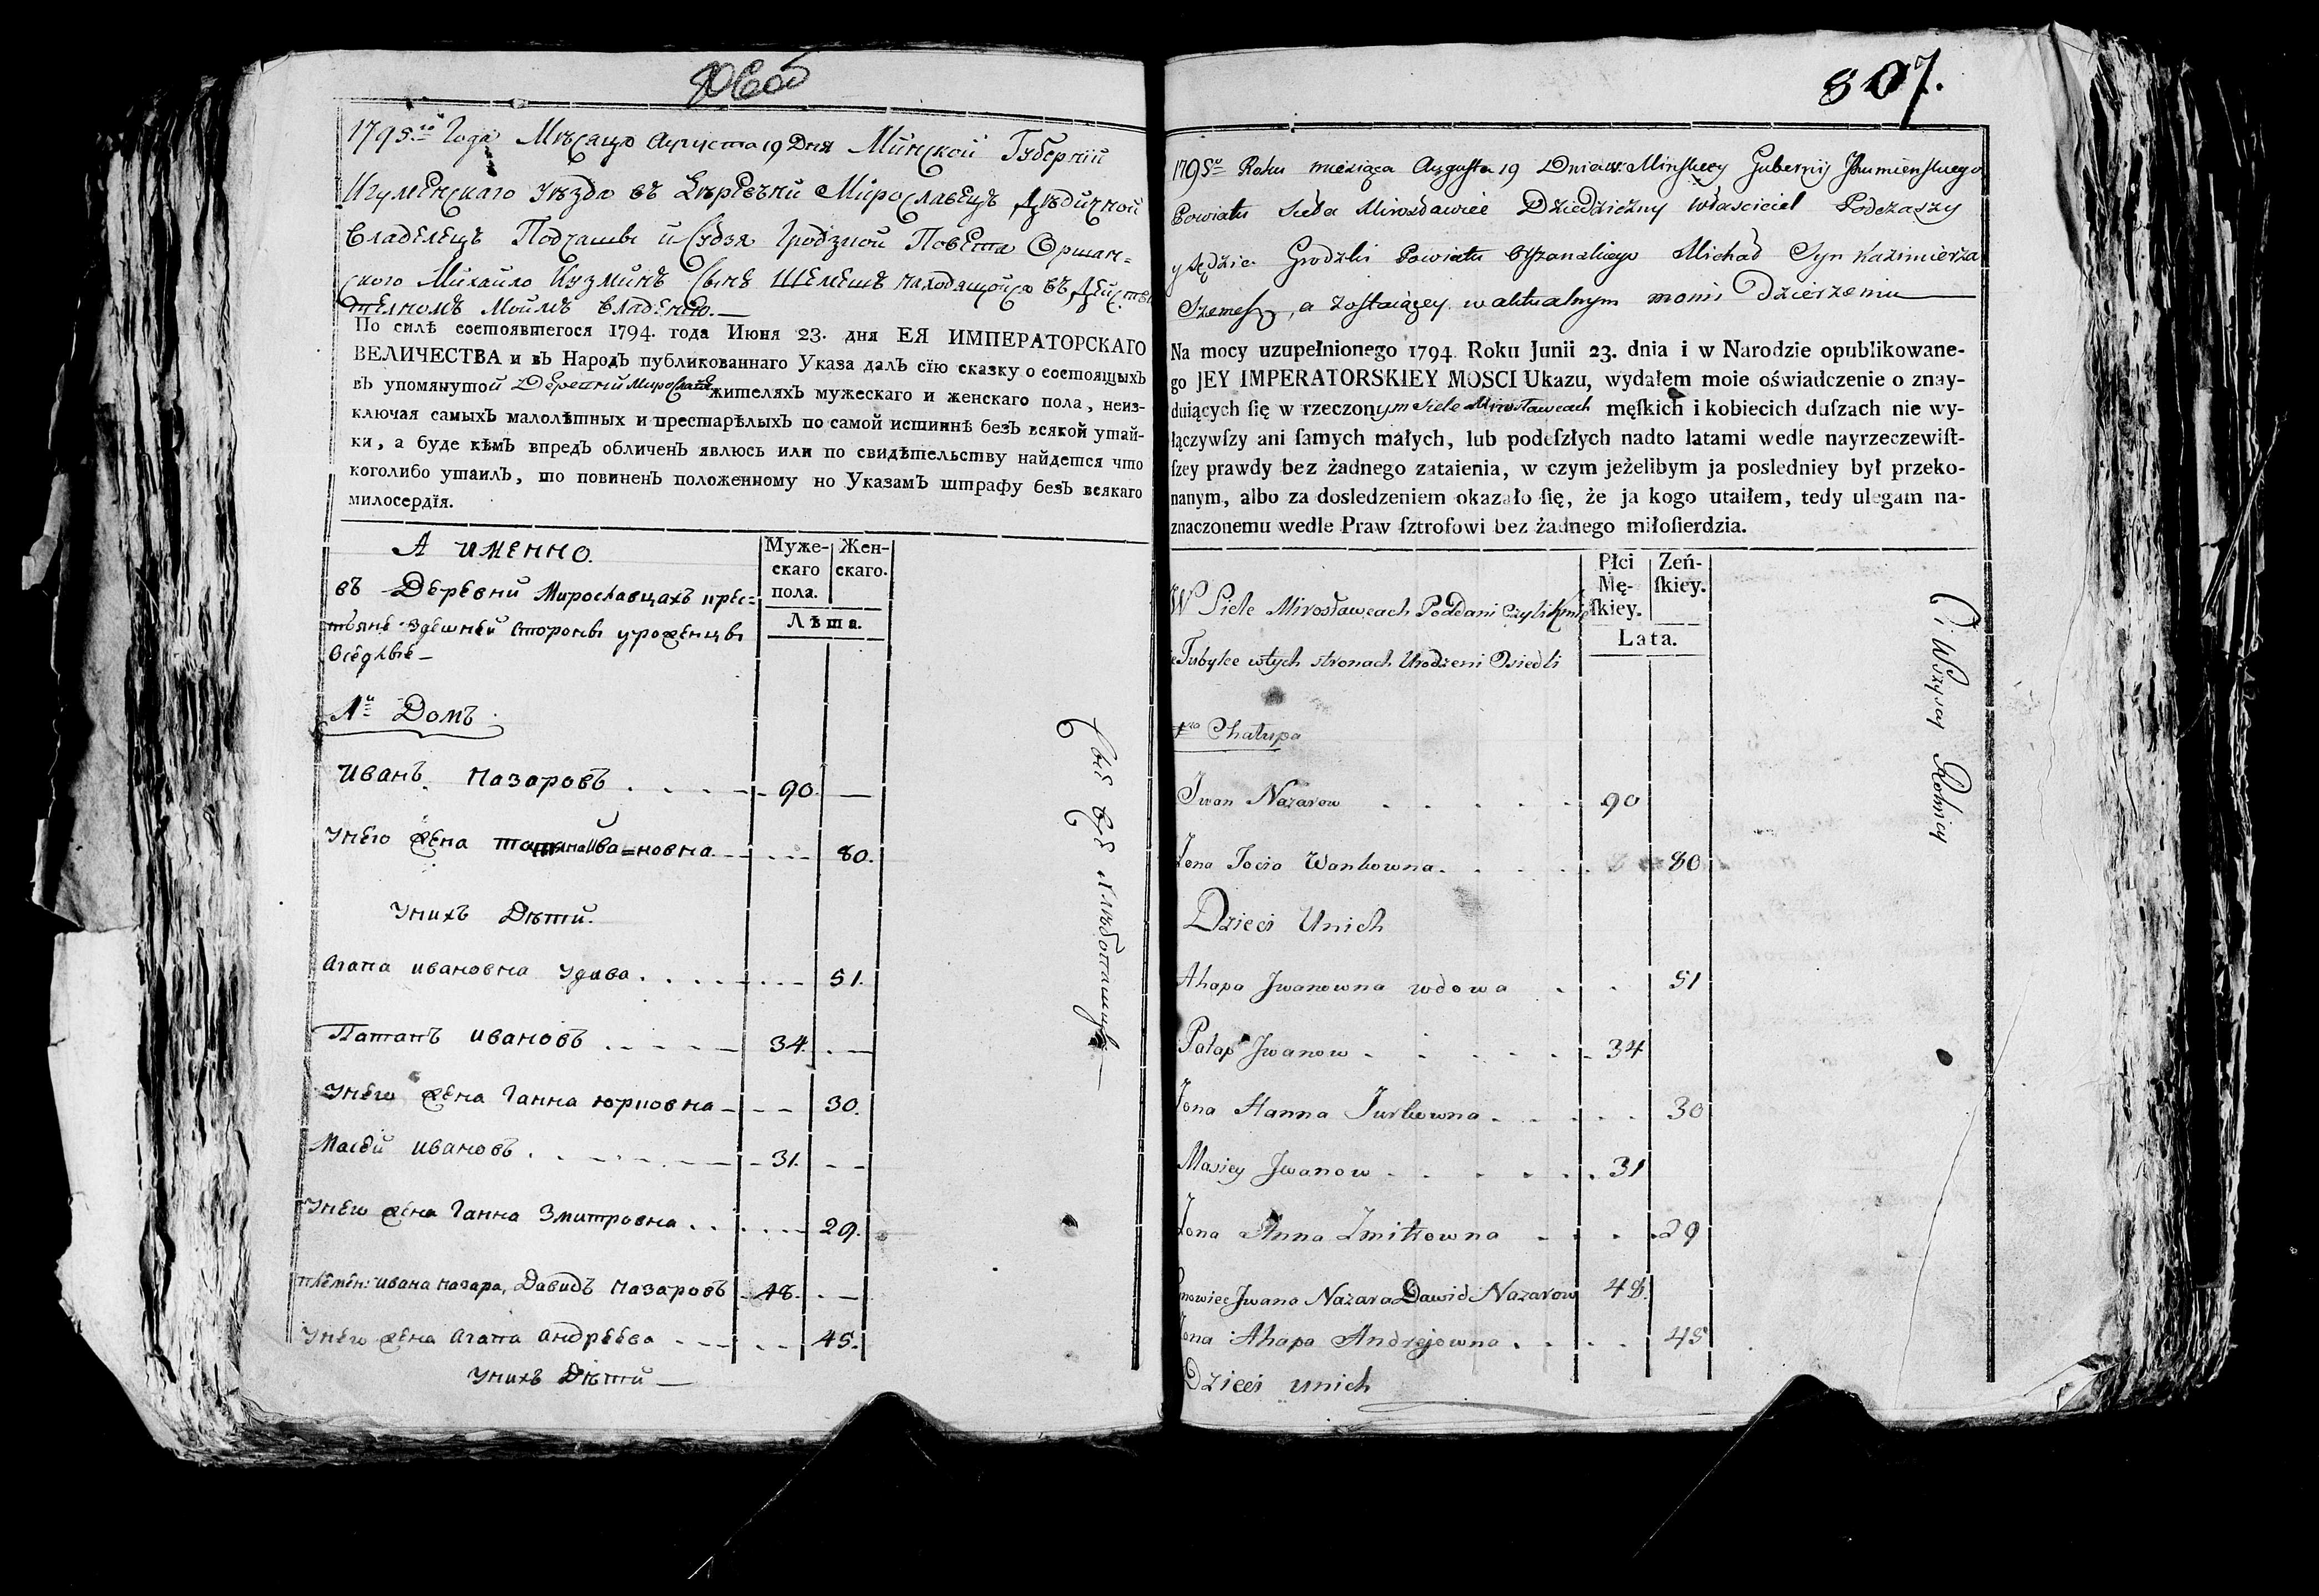 1795го Года Мѣсяца Августа 19 Дня Минской Губерніи
Игуменскаго уѣзда въ Деревни Мирославецъ Дѣдичной
Владелецъ Подчашы и Судзя Гродзкой Повета Оршан=
ского Михайло Кузминъ Сынъ Шемешъ находящойся въ Действи
телномъ Моимъ Владенію.—
По силѣ состоявшегося 1794. года Июня 23. дня ЕЯ ИМПЕРАТОРСКАГО
ВЕЛИЧЕСТВА и въ Народъ публикованнаго Указа далъ сїю сказку о состоящыхъ
въ упомянутой Деревни Мирослав жителяхъ мужескаго и женскаго пола, неиз-
ключая самыхъ малолѣтныхъ и престарѣлыхъ по самой истиннѣ безъ всякой утай-
ки, а буде кѣмъ впредъ обличенъ явлюсь или по свидѣтельству найдется что
коголибо утаилъ, то повиненъ положенному но Указамъ штрафу безъ всякаго
милосердїя.
А ИМЕННО.
Муже-
скаго
пола.
Жен-
скаго.
Лѣта.
въ Деревни Мирославцахъ крес=
тьяне здешней стороны уроженцы
Оседлые—
1й Домъ
Иванъ Назаровъ . . . . 90. —
Унего жена Татяна Ива=новна - - - 80.
Унихъ Дѣти.
Агапа Ивановна удава . . . . 51.
Патапъ Ивановъ . . . . 34. —
Унего жена Ганна Юрковна - - - 30.
Масей Ивановъ . . . . 31. - -
Унего жена Ганна Змитровна . . . . 29.
племен: Ивана Назара, Давидъ Назаровъ 48. . —
Унего жена Агапа Андреева - - - 45.
Унихъ Дѣти —
Сіи всѣ хлѣбопашцы —
807.
1795o Roku miesiąca Augusta 19 Dnia w Minskiey Gubernij Jhumienskiego
Powiatu Sieła Mirosławiec Dziedziczny właściciel Podczaszy
y sędzia Grodzki Powiatu Orszanskiego Michał Syn Kazimierza
Szemesz, a zostaiącey w aktualnym moim Dzierżeniu
Na mocy uzupełnionego 1794. Roku Junii 23. dnia i w Narodzie opublikowane-
go JEY IMPERATORSKIEY MOSCI Ukazu, wydałem moie oświadczenie o znay-
duiących ſię w rzeczonym Siele Mirosławcach męſkich i kobiecich duſzach nie wy-
łączywſzy ani ſamych małych, lub podeſzłych nadto latami wedle nayrzeczewiſt-
ſzey prawdy bez żadnego zataienia, w czym jeżelibym ja posledniey był przeko-
nanym, albo za dosledzeniem okazało ſię, że ja kogo utaiłem, tedy ulegam na-
znaczonemu wedle Praw ſztrofowi bez żadnego miłoſierdzia.
Płci
Mę-
ſkiey.
Zeń-
ſkiey.
Lata.
W Siele Mirosławcach Poddani czyli Kmie
Tubylce w tych stronach Urodzeni Osiedli
1wsza Chałupa
Iwan Nazarow . . . . . 90
Zona Tocia Wankowna. . . . . 80
Dzieci Unich
Ahapa Jwanowna wdowa . . 51
Patap Jwanow . . . . . 34
Zona Hanna Jurkowna . . . . 30
Masiey Jwanow . . . . . 31
Zona Anna Zmitrowna . . . . 29
Jwana Nazara Dawid Nazarow 48.
Zona Ahapa Andrejowna . . . . 45
Dzieci unich
Ci Wszyscy Rolnicy